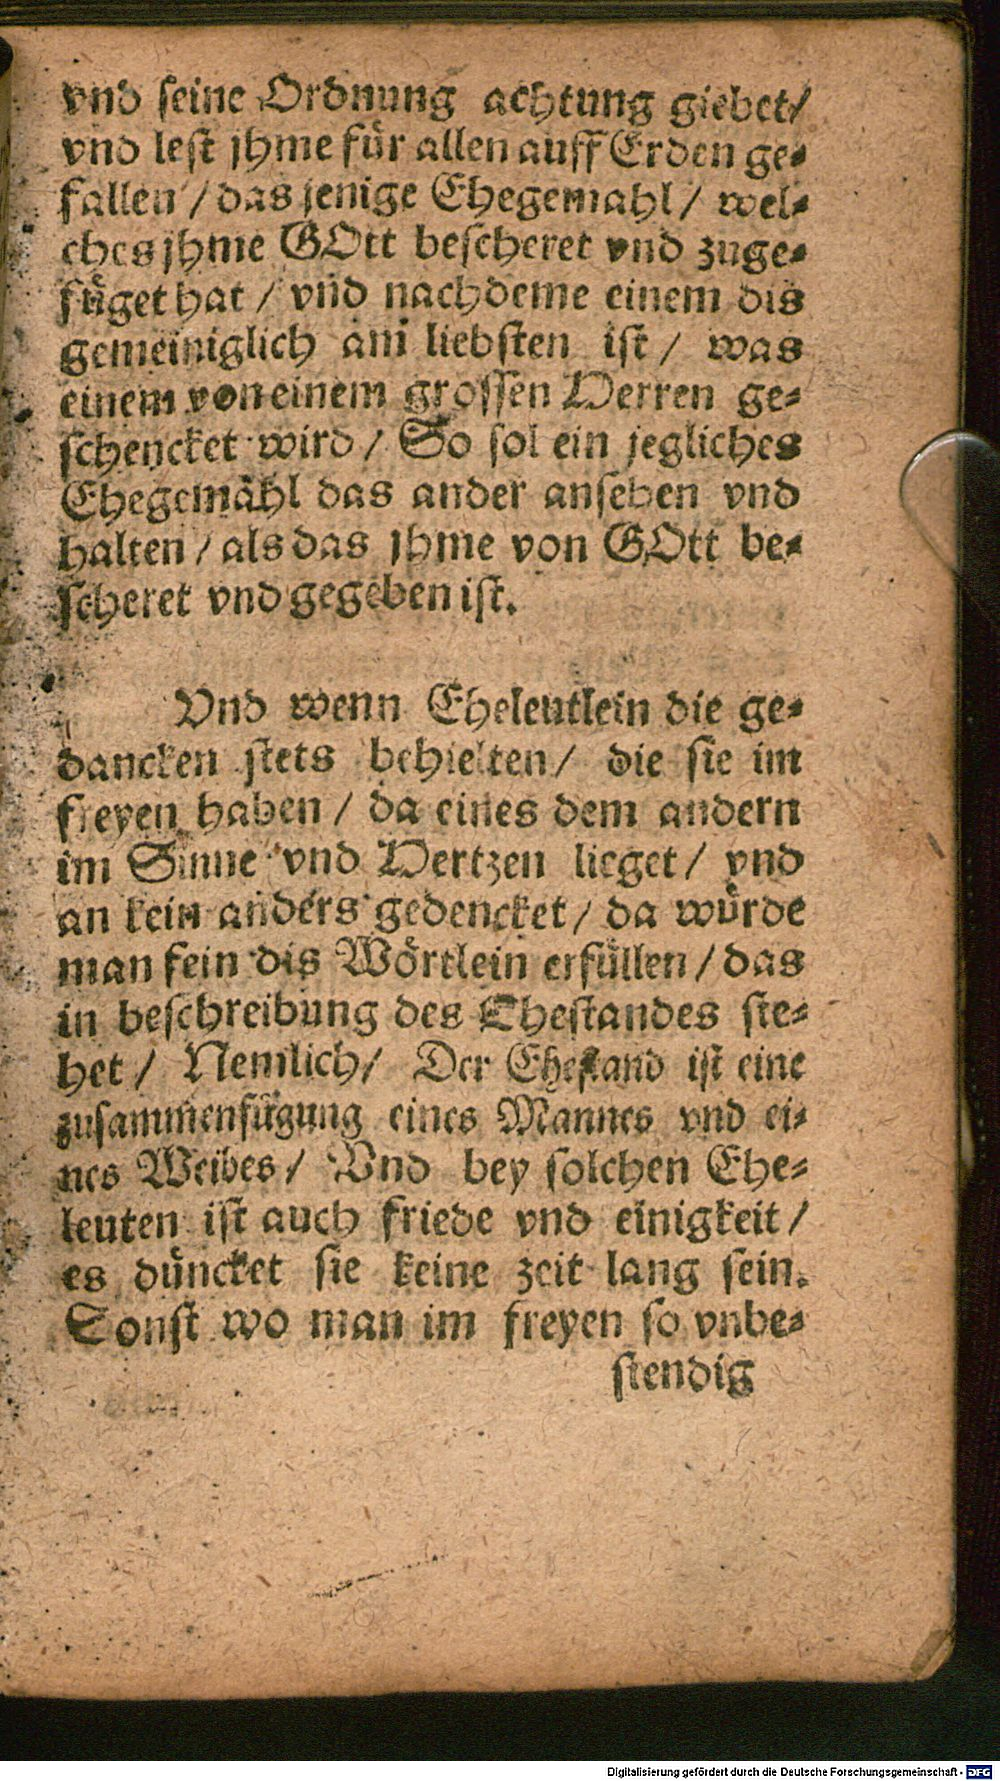 vnd seine Ordnung achtung giebet/
vnd lest jhme für allen auff Erden ge-
fallen / das jenige Ehegemahl / wel-
ches jhme GOtt bescheret vnd zuge-
füget hat / vnd nachdeme einem dis
gemeiniglich am liebsten ist / was
einem von einem grossen Herren ge-
schencket wird / So sol ein jegliches
Ehegemahl das ander ansehen vnd
halten / als das jhme von GOtt be-
scheret vnd gegeben ist.
Vnd wenn Eheleutlein die ge-
dancken stets behielten / die sie im
freyen haben / da eines dem andern
im Sinne vnd Hertzen lieget / vnd
an kein anders gedencket / da würde
man fein dis Wörtlein erfüllen / das
in beschreibung des Ehestandes ste-
het / Nemlich / Der Ehestand ist eine
zusammenfügung eines Mannes vnd ei-
nes Weibes / Vnd bey solchen Ehe-
leuten ist auch friede vnd einigkeit /
es düncket sie keine zeit lang sein.
Sonst wo man im freyen so vnbe-
stendig
Digitalisierung gefördert durch die Deutsche Forschungsgemeinschaft - DFG